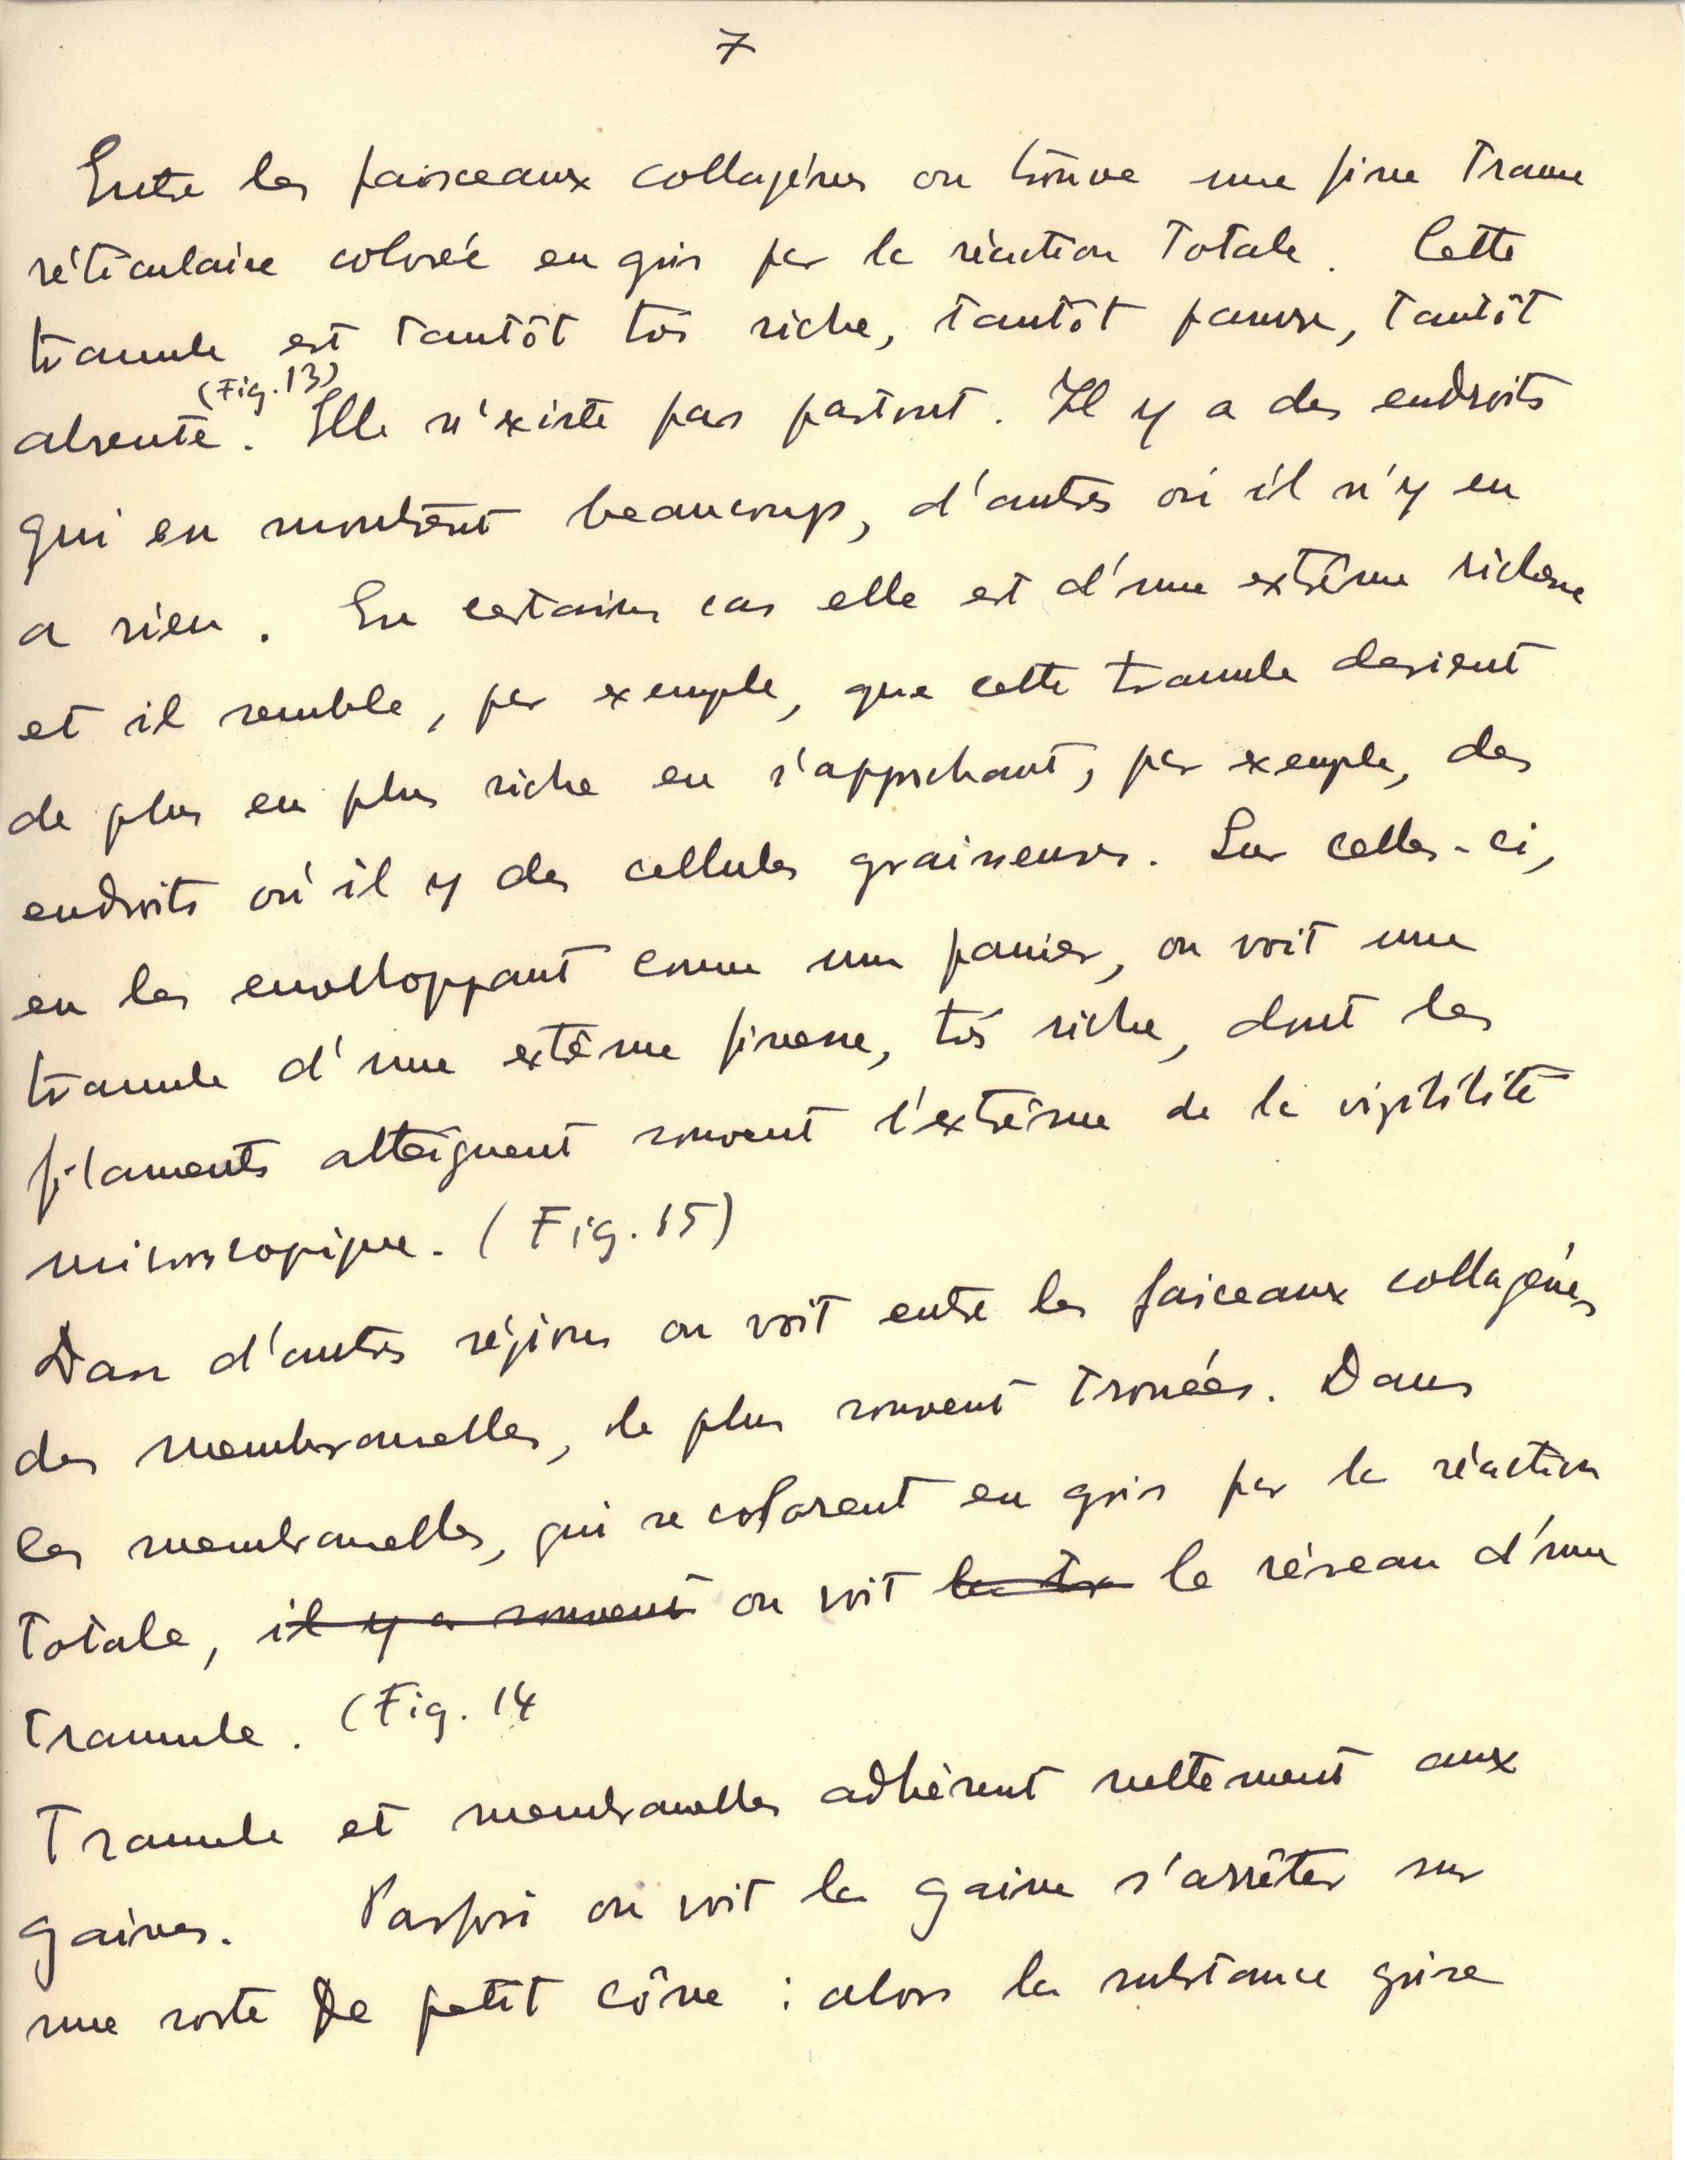 7
Entre les faisceaux collagènes on trouve une fine trame
réticulaire colorée en gris par la réaction totale. Cette
tramule est tantôt très riche, tantôt pauvre, tantôt
(Fig. 13)
absente. Elle n'existe pas partout. Il y a des endroits
qui en montrent beaucoup, d'autres où il n'y en
a rien. En certains cas elle est d'une extrême richesse
et il semble, par exemple, que cette tramule devient
de plus en plus riche en s'approchant, par exemple, des
endroits où il y des cellules graisseuses. Sur celles-ci,
en les envelloppant comme un panier, on voit une
tramule d'une extrême finesse, très riche, dont les
filaments atteignent souvent l'extrême de la visibilité
microscopique. (Fig. 15)
Dans d'autres régions on voit entre les faiceaux collagènes
des membranelles, le plus souvent trouées. Dans
les membranelles, qui se colorent en gris par la réaction
totale, il y a souvent on voit la tr le réseau d'une
tramule. (Fig. 14
Tramule et membranelles adhèrent nettement aux
gaines. Parfois on voit la gaine s'arrêter sur
une sorte de petit cône : alors la substance grise